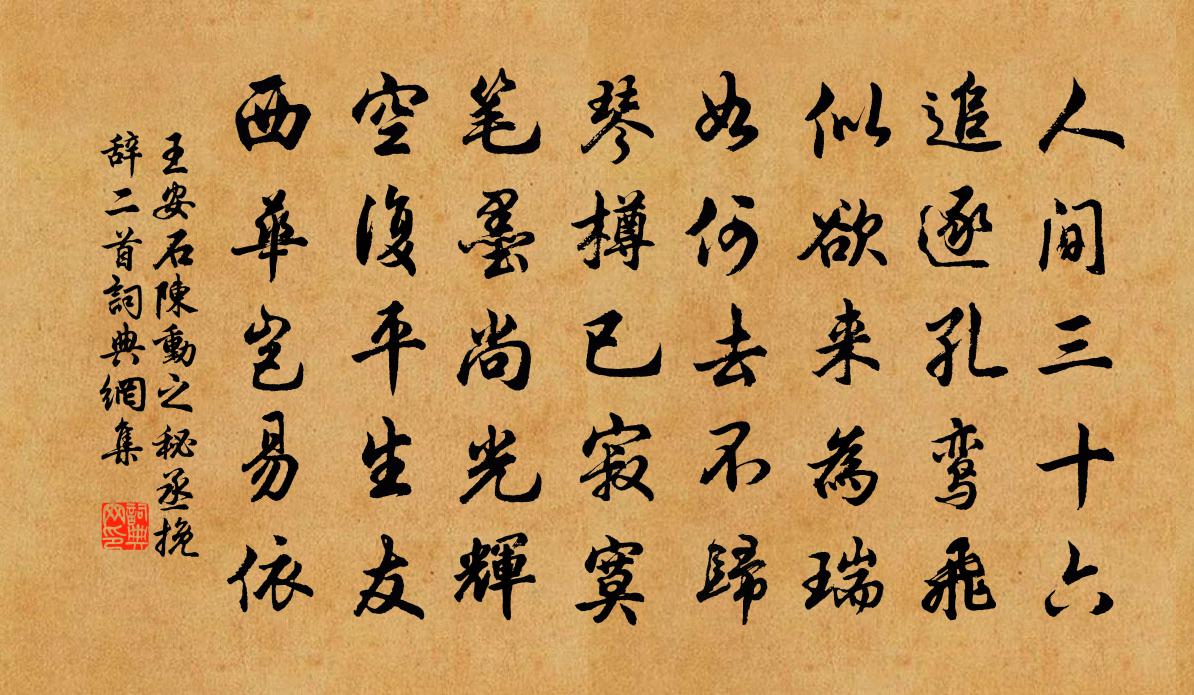 人间三十六
追逐孔鸾飞
似欲来為瑞
如何去不歸
琴樽已寂寞
笔墨尚光輝
空復平生友
西華岂易依
王安石陳動之秘丞挽
辞二首詞典網集
詞典网印